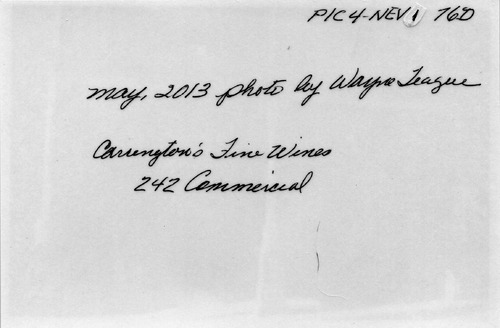 PIC4-NEV 1 760
May, 2013 photo by Wayne League
Carrington's Fine Wines
242 Commercial